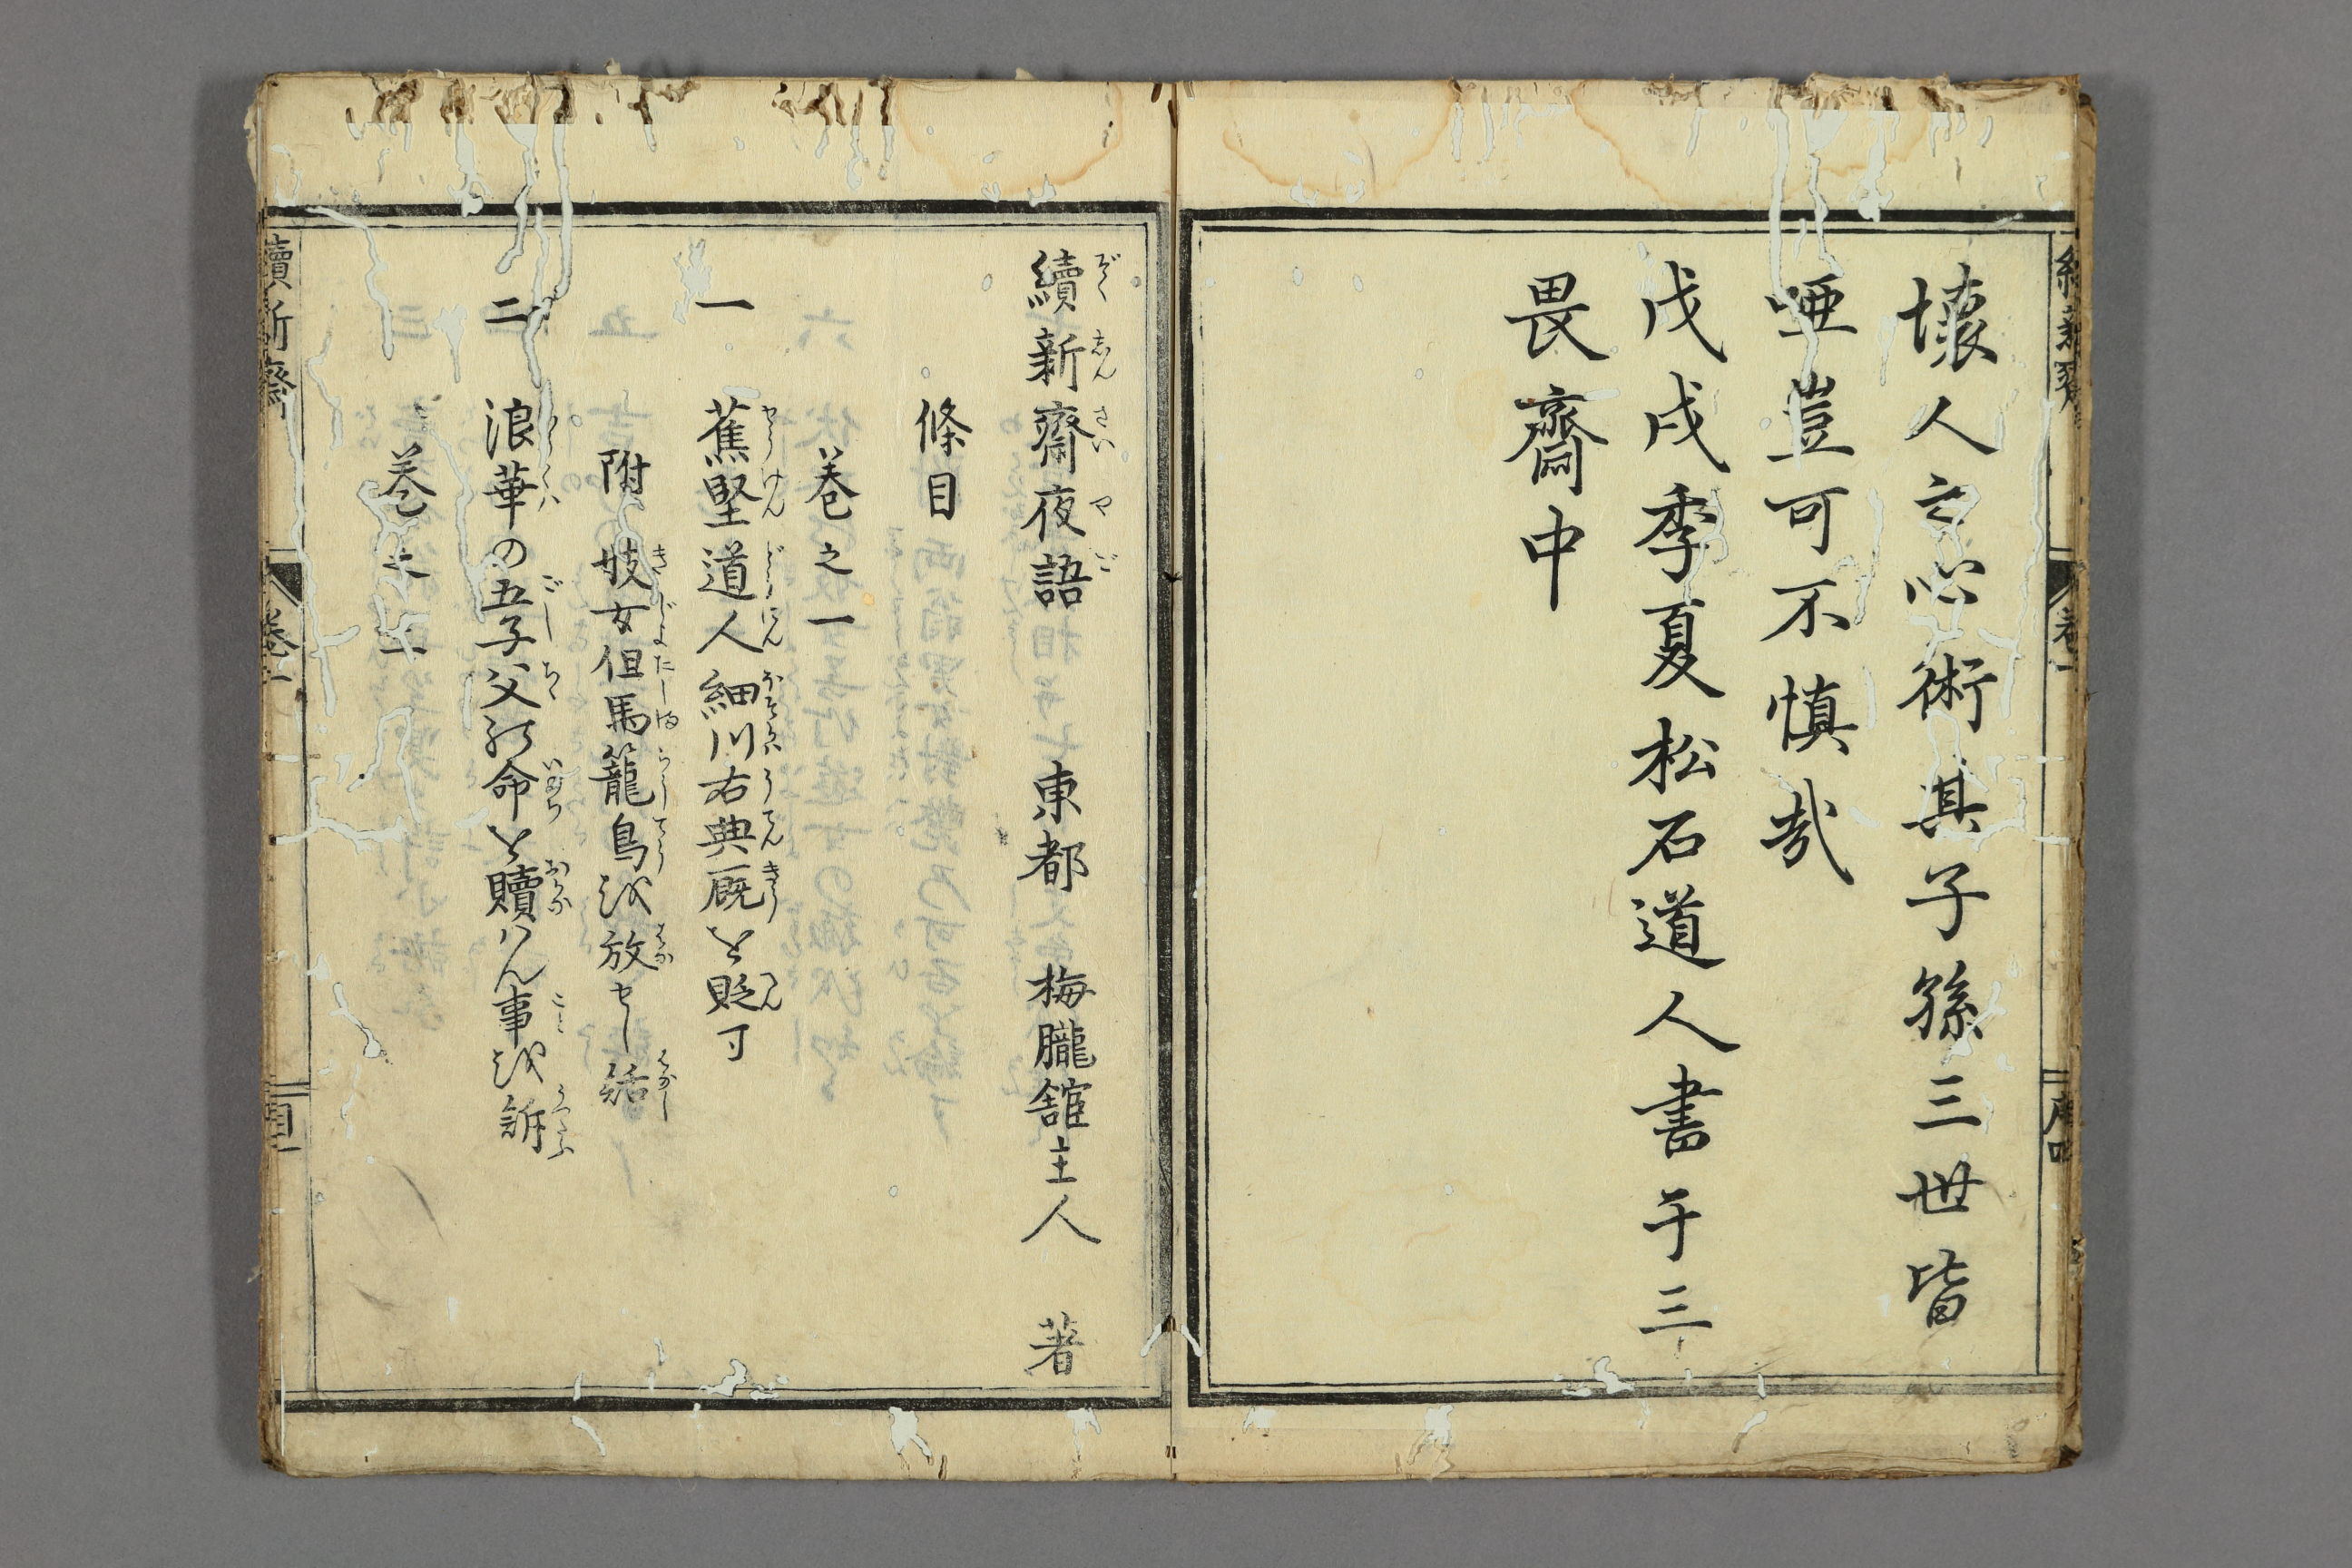 壞人之心術其子孫三世皆
唖豈可不慎哉
戊戌季夏松石道人書于三
畏齋中
續新齋夜語　東都　梅朧舘主人　著
ぞくしんさいやご
條目
巻之一
一　蕉堅道人細川右典厩を貶す
附　妓女但馬籠鳥を放せし話
二　浪華の五子父の命を贖はん事を訴
巻之二
續新齋
巻一
目一
序四